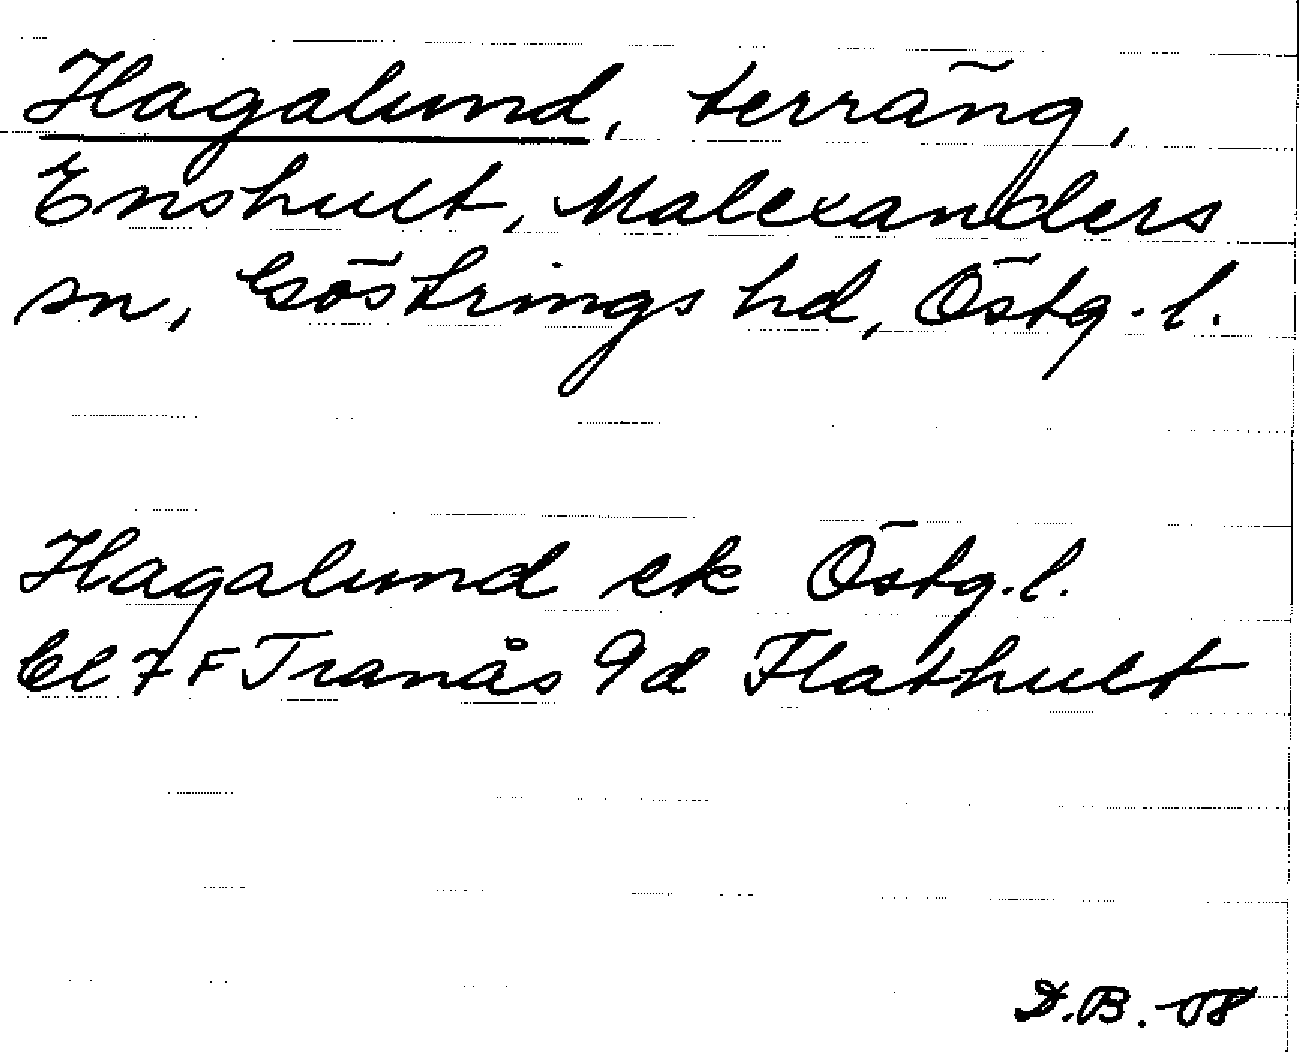 Hagalund, terräng,
Enshult, Malexanders
sn, Göstrings hd, Östg. l.
Hagalund ek Östg. l.
Bl 7 F Tranås 9d Flathult
D.B. -08